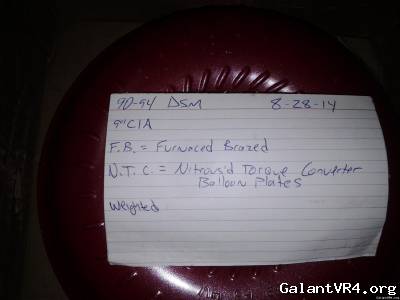 90-94 DSM 8-28-14
9" CIA
F.B. = Furnaced Brazed
N.T.C. = Nitrous'd Torque Converter
Balloon Plates
Weighted
GalantVR4.org